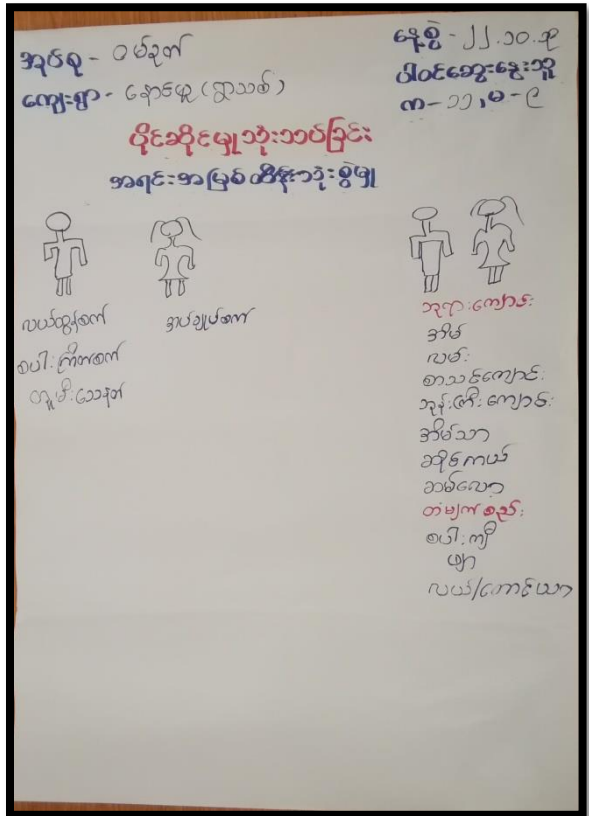 အုပ်စု - ဝမ်ခုတ်
ကျေးရွာ - နောင်ယူ (ရွာသစ်)
နေ့စွဲ - ၂၂.၁၀.၃၃
ပါဝင်ဆွေးနွေးသူ
က - ၁၁, မ - ၉
ပိုင်ဆိုင်မှုသုံးသပ်ခြင်း
အရင်းအမြစ်ထိန်းသုံးစွဲမှု
လယ်ထွန်စက်
စပါးကြိတ်စက်
တူမီးသေနတ်
အပ်ချုပ်စက်
ဘုရားကျောင်း
အိမ်
လမ်း
စာသင်ကျောင်း
ဘုန်းကြီးကျောင်း
အိမ်သာ
ဆိုင်ကယ်
ထမ်လော့
တံမျက်စည်း
စပါးကျီ
ဖျာ
လယ်/တောင်ယာ